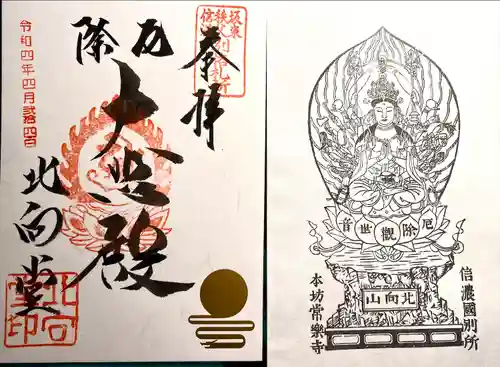 奉拝
厄除
大悲殿
北向堂
令和四年四月弐拾四日
北向堂印
厄除觀世音
北向山
信濃國別所
本坊常樂寺